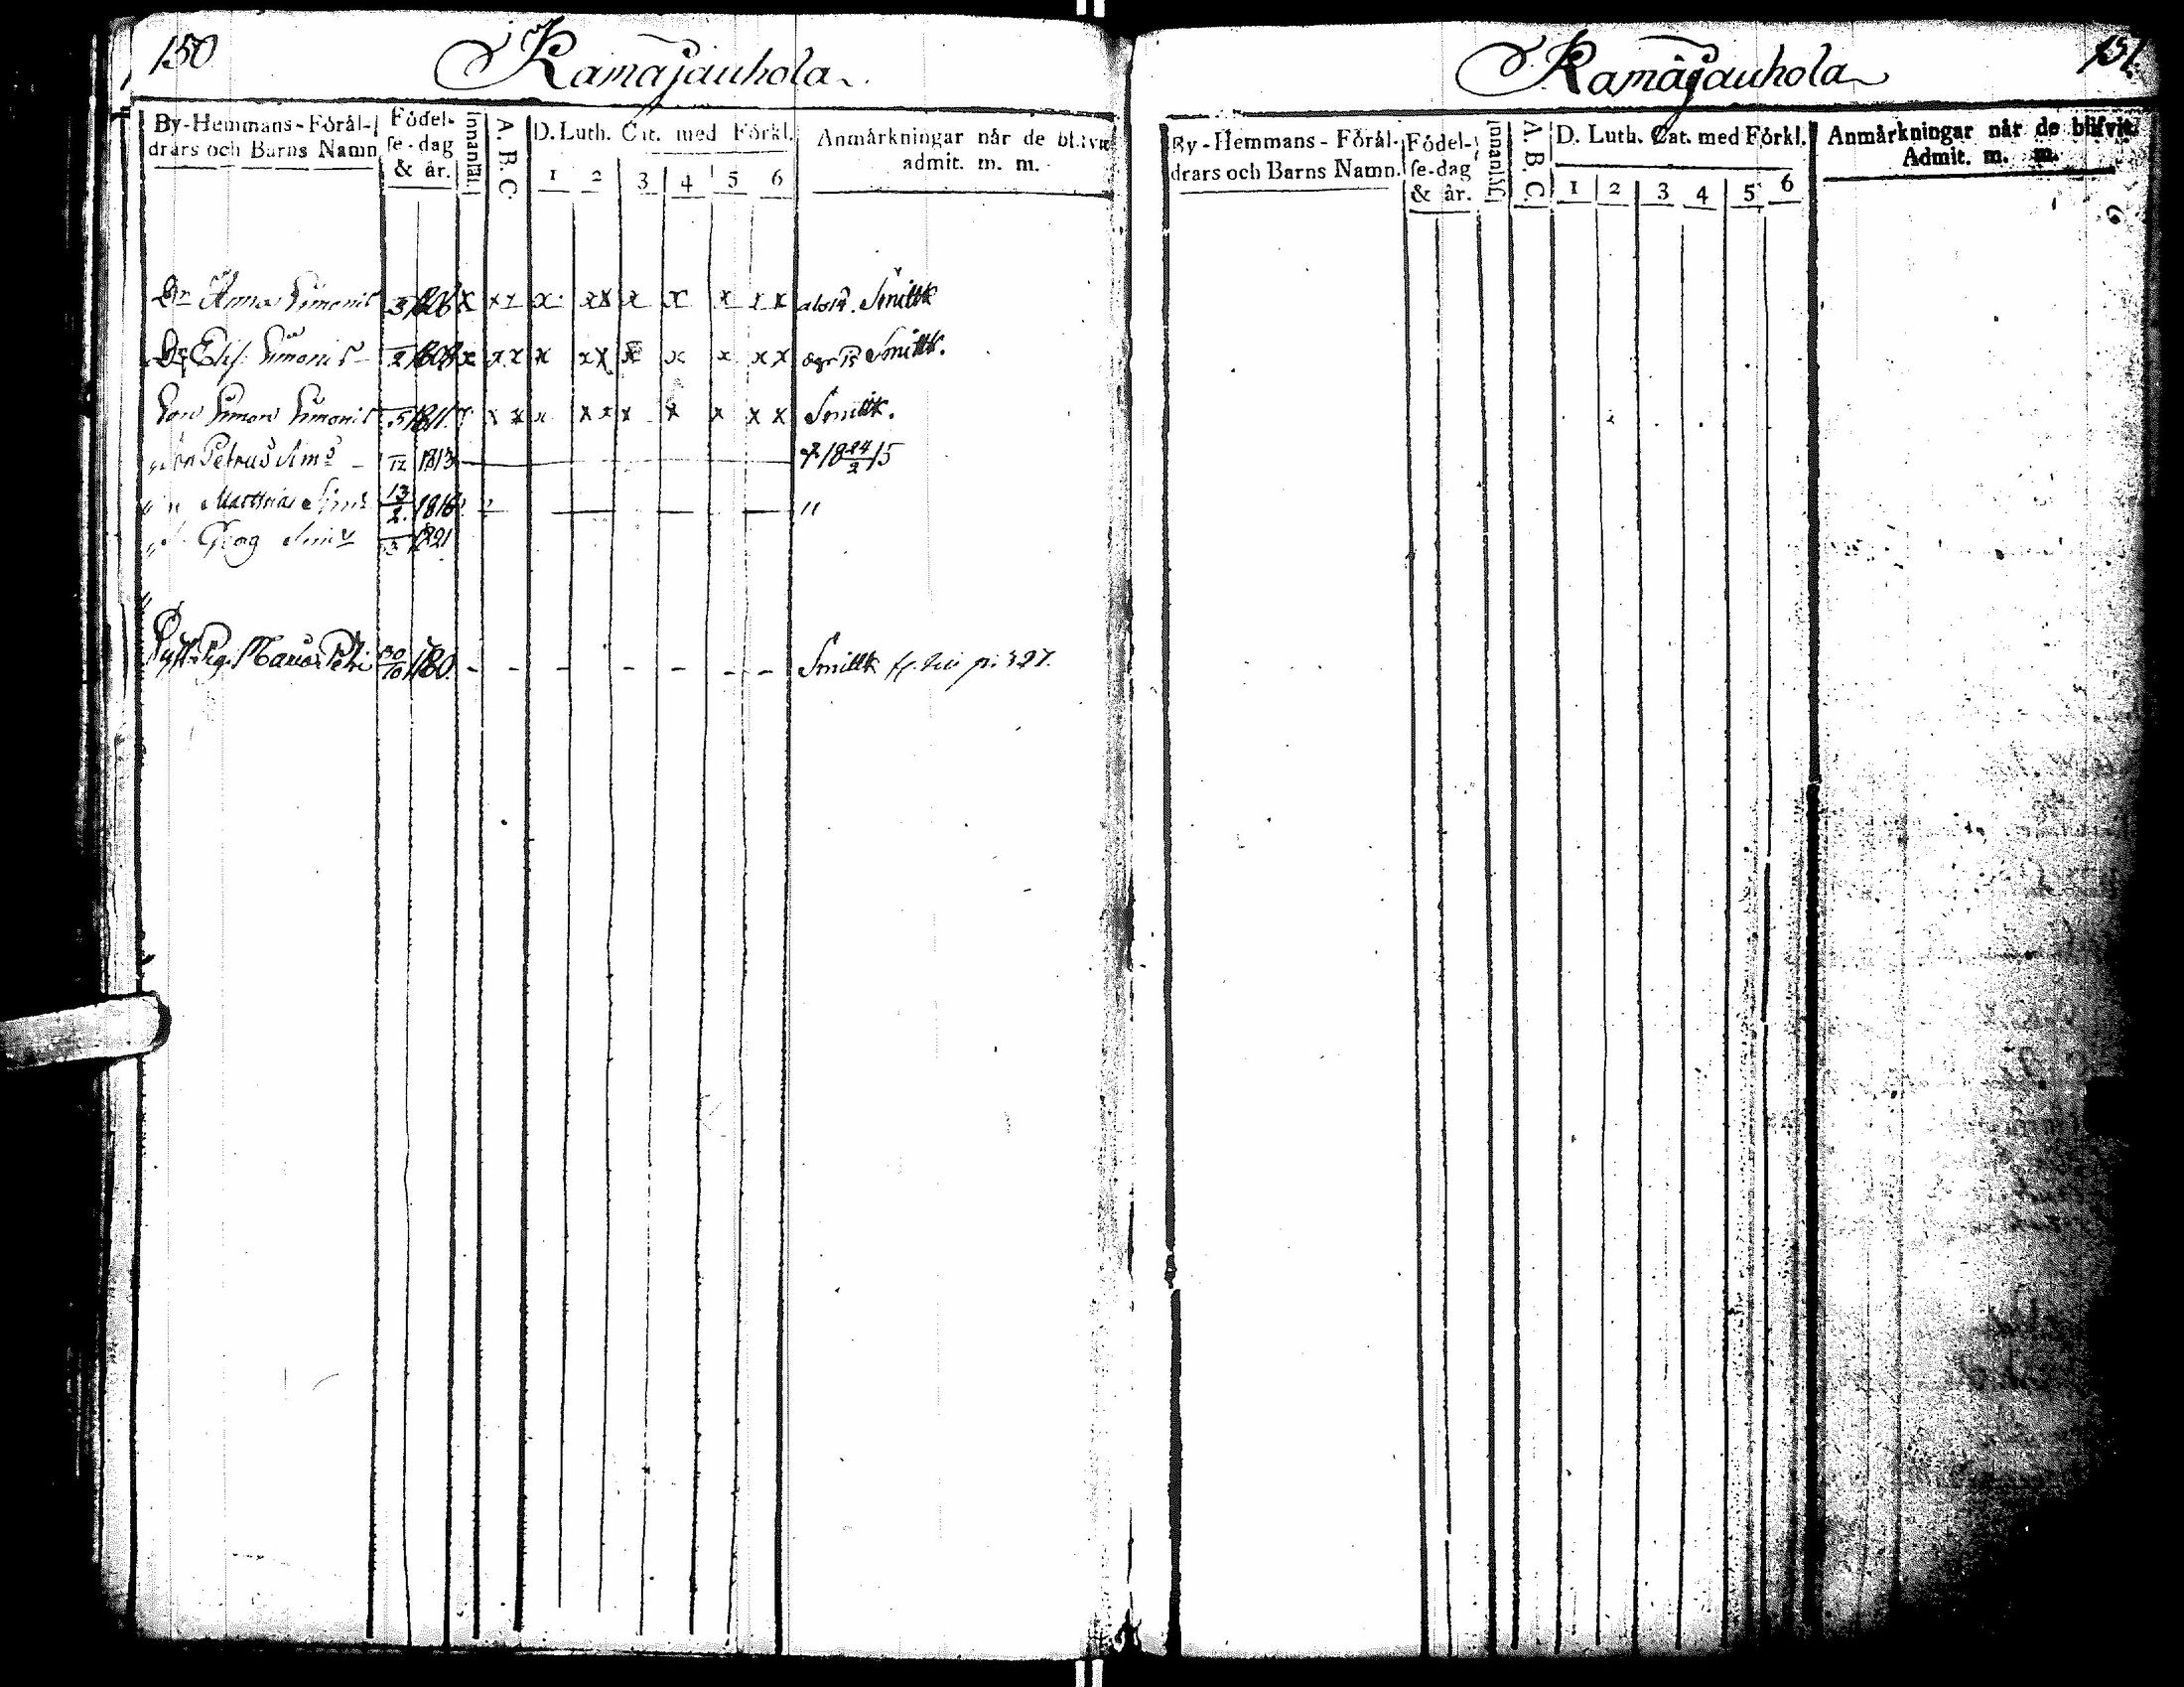 150
Ramajauhola
By-Hemmans-Förål-
drars och Barns Namn
Födel-
se-dag
& år.
Innanläs.
A. B. C.
D. Luth. Cat. med Förkl.
1 2 3 4 5 6
Anmärkningar når de blifvit
admit. m. m.
Dr Anna Simonis 3 1806 x x x x x x x x x x x Smittk
Dr Elis. Simonis 2 1808 x x x x x x x x x x x x Smittk.
Son Simon Simonis 5 1811 x x x x x x x x x x Smittk.
Petrus Sims 12 1813 † 18 24/2 15
Matthias Sims 13/2 1816 "
Georg Sims 3 1821
Maria Petri 30/10 1780. - - - - - - - Smittk p. 327.
Ramajauhola
151
By-Hemmans-Förål-
drars och Barns Namn.
Födel-
se-dag
& år.
Innanläs.
A. B. C.
D. Luth. Cat. med Förkl.
1 2 3 4 5 6
Anmärkningar når de blifvit
Admit. m. m.